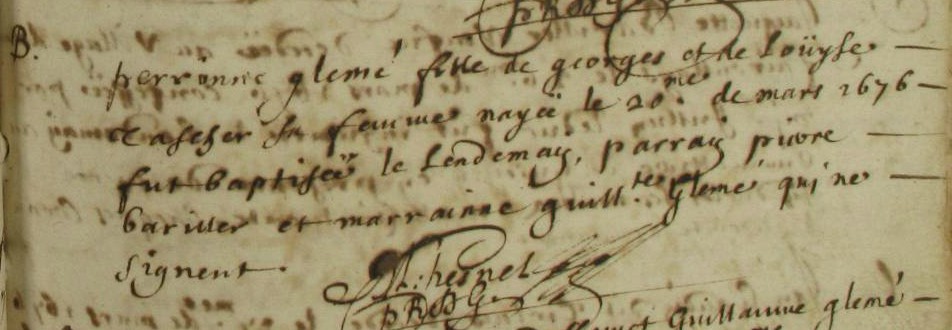 B.
perronne glemé fille de georges et de Loüyse
Tascher sa femme nayée le 20.me de mars 1676
fut baptisée le Lendemain, parrain pierre
baritter et marrainne guill.te Glemé qui ne
signent.
Chesnel
PRDG.
Guillaume glemé